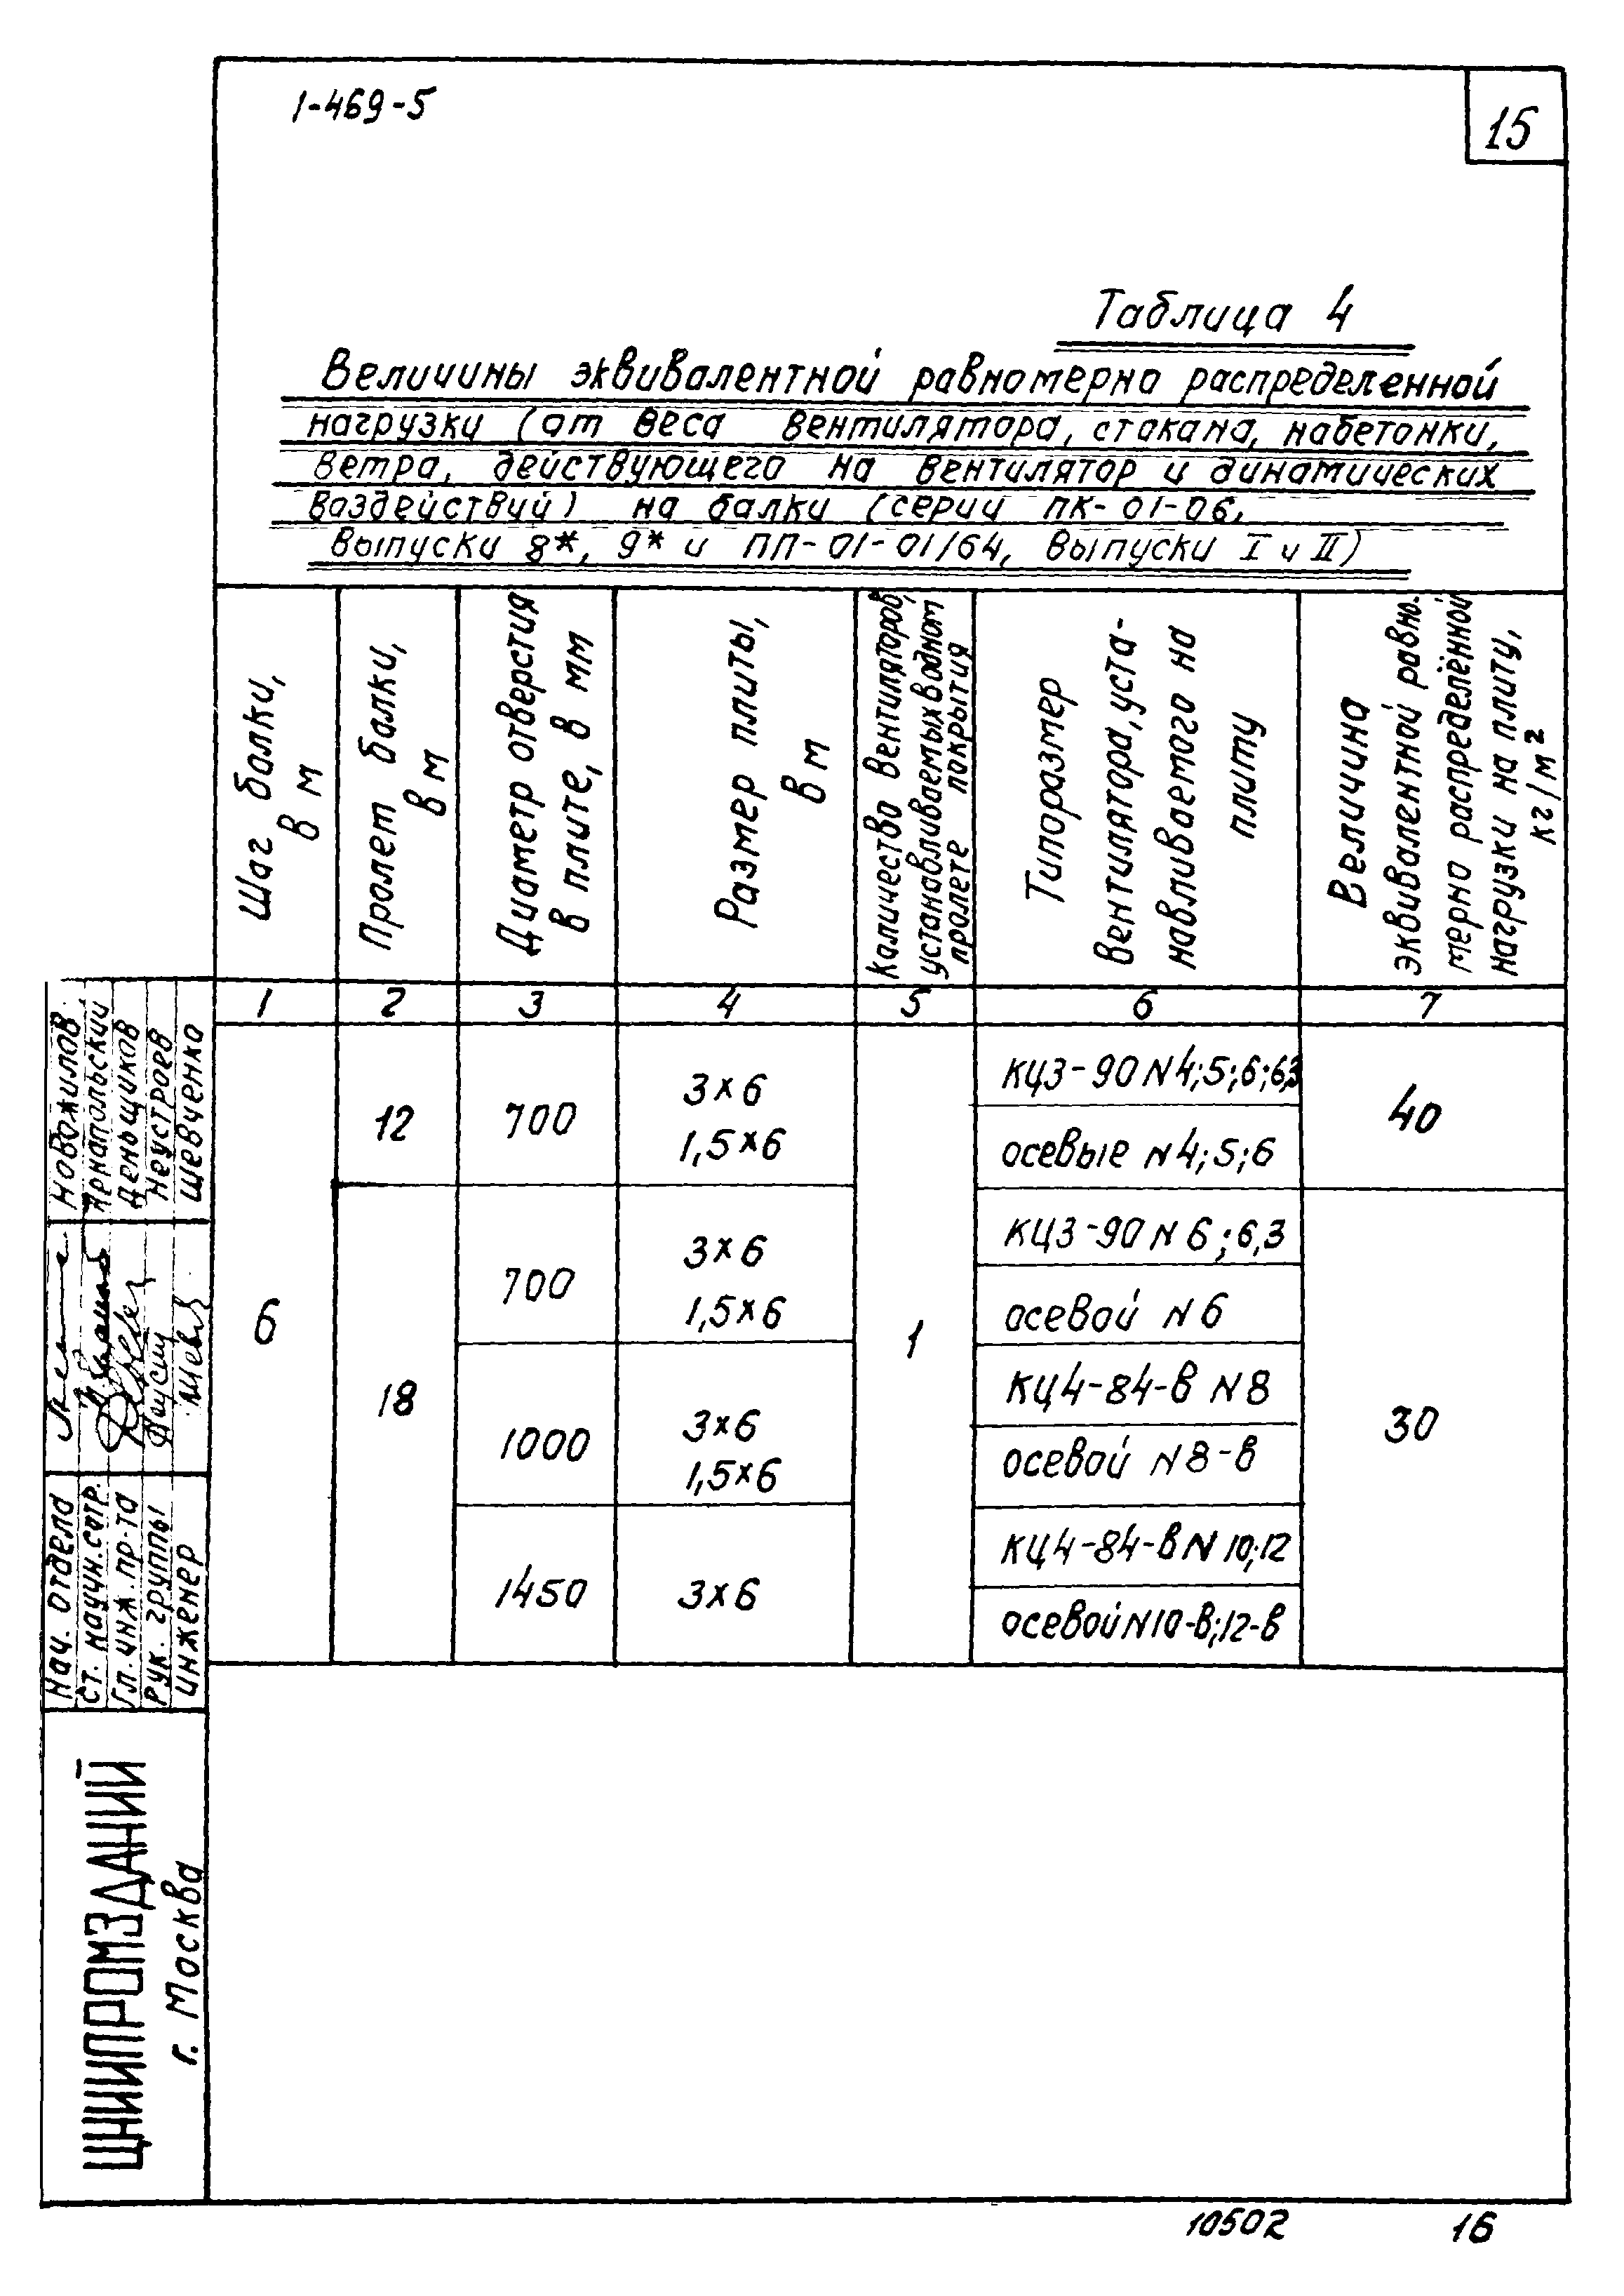 1-469-5
15
Таблица 4
Величины эквивалентной равномерно распределенной
нагрузки (от веса вентилятора, стакана, набетонки,
ветра, действующего на вентилятор и динамических
воздействий) на балки (серии ПК-01-06,
выпуски 8*, 9* и ПП-01-01/64, выпуски I и II)
Шаг балки,
в м
Пролет балки,
в м
Диаметр отверстия
в плите, в мм
Размер плиты,
в м
Количество вентиляторов,
устанавливаемых в одном
пролете покрытия
Типоразмер
вентилятора, уста-
навливаемого на
плиту
Величина
эквивалентной равно-
мерно распределённой
нагрузки на плиту,
кг/м²
1 2 3 4 5 6 7
6
12
700
3×6
1,5×6
1
КЦ3-90 N4;5;6;6,3
осевые N4;5;6
40
18
700
3×6
1,5×6
КЦ3-90 N6;6,3
осевой N6
30
1000
3×6
1,5×6
КЦ4-84-в N8
осевой N8-в
1450
3×6
КЦ4-84-в N10;12
осевой N10-в;12-в
Нач. отдела Новожилов
Ст. научн. сотр.
Гл. инж. пр-та Деньщиков
Рук. группы Неустроев
инженер Шевченко
ЦНИИПРОМЗДАНИЙ
г. Москва
10502
16